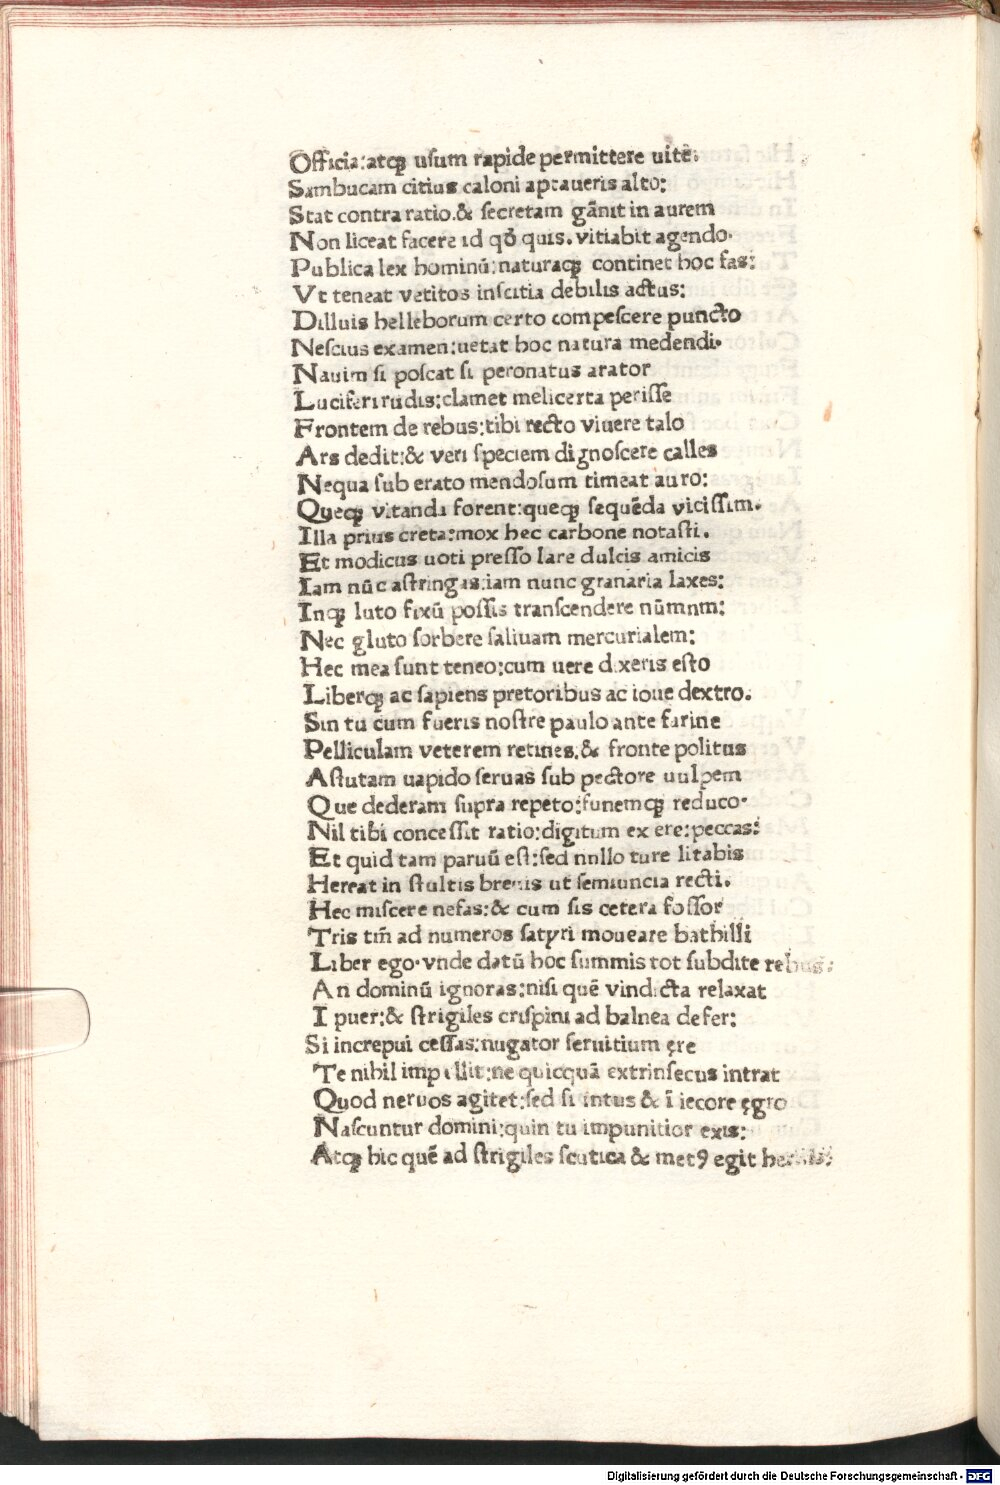 Officia:atqꝫ usum rapide permittere uitę.
Sambucam citius caloni aptaueris alto:
Stat contra ratio.& secretam gānit in aurem
Non liceat facere id qď quis. vitiabit agendo.
Publica lex hominū:naturaqꝫ continet hoc fas:
Vt teneat vetitos inscitia debilis actus:
Dilluis helleborum certo compescere puncto
Nescius examen:uetat hoc natura medendi.
Nauim si poscat si peronatus arator
Luciferi rudis:clamet melicerta perisse
Frontem de rebus:tibi recto viuere talo
Ars dedit:& veri speciem dignoscere calles
Nequa sub erato mendosum timeat auro:
Queqꝫ vitanda forent:queqꝫ sequēda vicissim.
Illa prius creta:mox hec carbone notasti.
Et modicus uoti presso lare dulcis amicis
Iam nūc astringas:iam nunc granaria laxes:
Inqꝫ luto fixū possis transcendere nūmnm:
Nec gluto sorbere saliuam mercurialem:
Hec mea sunt teneo:cum uere dixeris esto
Liberqꝫ ac sapiens pretoribus ac ioue dextro.
Sin tu cum fueris nostre paulo ante farine
Pelliculam veterem retines.& fronte politus
Astutam uapido seruas sub pectore uulpem
Que dederam supra repeto:funemqꝫ reduco.
Nil tibi concessit ratio:digitum exere:peccas:
Et quid tam paruū est:sed nnllo ture litabis
Hereat in stultis breuis ut semiuncia recti.
Hec miscere nefas:& cum sis cetera fossor
Tris tm̄ ad numeros satyri moueare bathilli
Liber ego.vnde datū hoc summis tot subdite rebus:
An dominū ignoras:nisi quē vindicta relaxat
I puer:& strigiles crispini ad balnea defer:
Si increpui cessas:nugator seruitium ęre
Te nihil impellit:ne quicquā extrinsecus intrat
Quod neruos agitet:sed si intus & ī iecore ęgro
Nascuntur domini:quin tu impunitior exis:
Atqꝫ hic quē ad strigiles scutica & metꝰ egit herilis:
Digitalisierung gefördert durch die Deutsche Forschungsgemeinschaft - DFG